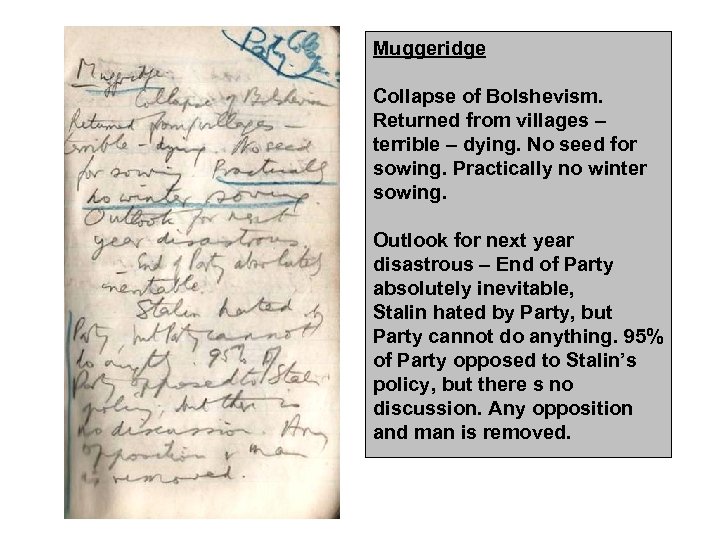 Party. Collapse
Muggeridge
Collapse of Bolshevism
Returned from villages –
terrible – dying. No seed
for sowing. Practically
no winter sowing.
Outlook for next
year disastrous.
– End of Party absolutely
inevitable.
Stalin hated by
Party, but Party cannot
do anything. 95% of
Party opposed to Stalin's
policy, but there is
no discussion. Any
opposition & man
is removed.
Muggeridge
Collapse of Bolshevism.
Returned from villages –
terrible – dying. No seed for
sowing. Practically no winter
sowing.
Outlook for next year
disastrous – End of Party
absolutely inevitable,
Stalin hated by Party, but
Party cannot do anything. 95%
of Party opposed to Stalin’s
policy, but there s no
discussion. Any opposition
and man is removed.